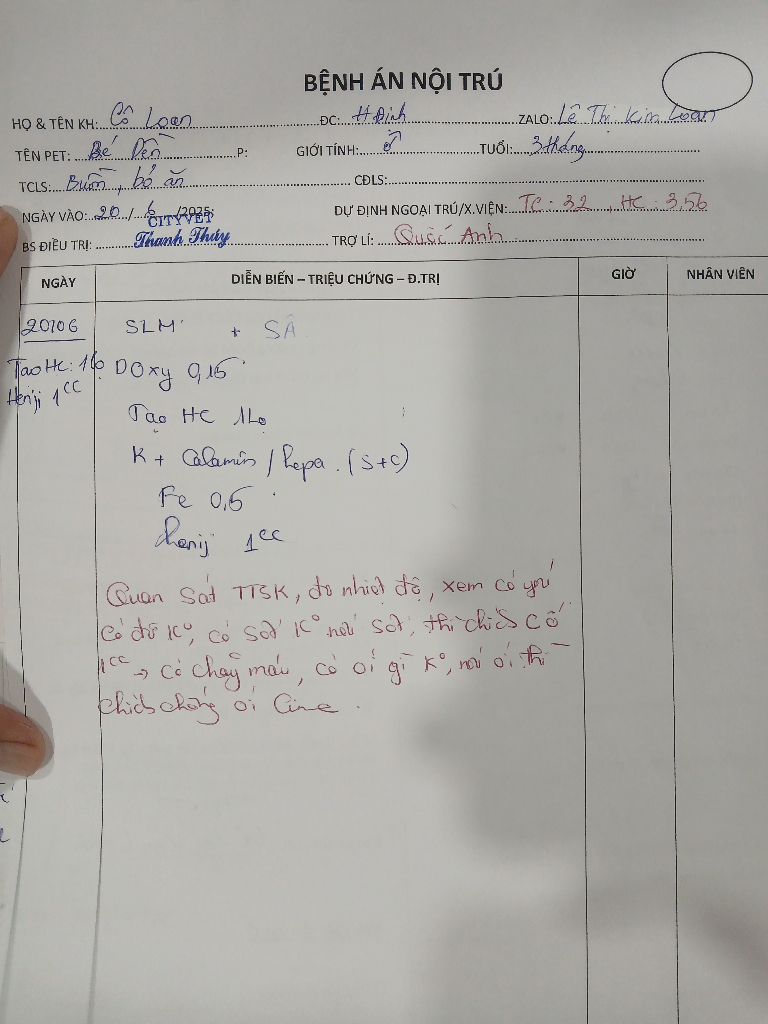 BỆNH ÁN NỘI TRÚ
HỌ & TÊN KH: Cô Loan ĐC: H Định ZALO: Lê Thị Kim Loan
TÊN PET: Bé Dền P: GIỚI TÍNH: ♂ TUỔI: 3 tháng
TCLS: Buồn, bỏ ăn CĐLS:
NGÀY VÀO: 20 / 6 /2025 DỰ ĐỊNH NGOẠI TRÚ/X.VIỆN: TC: 32, HC: 3,56
CITYVET
BS ĐIỀU TRỊ: Thanh Thúy TRỢ LÍ: Quốc Anh
NGÀY DIỄN BIẾN – TRIỆU CHỨNG – Đ.TRỊ GIỜ NHÂN VIÊN
20/06 SLM + SÂ
Tạo HC: 1lọ Doxy 0,15
Henij 1cc
Tạo HC 1lọ
K + Calamin / hepa. (S+C)
Fe 0,5
henij 1cc
Quan sát TTSK, đo nhiệt độ, xem có yếu
có đỡ Kº, có sốt Kº nếu sốt, thì chích
1cc → có chảy máu, có ói gì Kº, nếu ói thì
chích chống ói